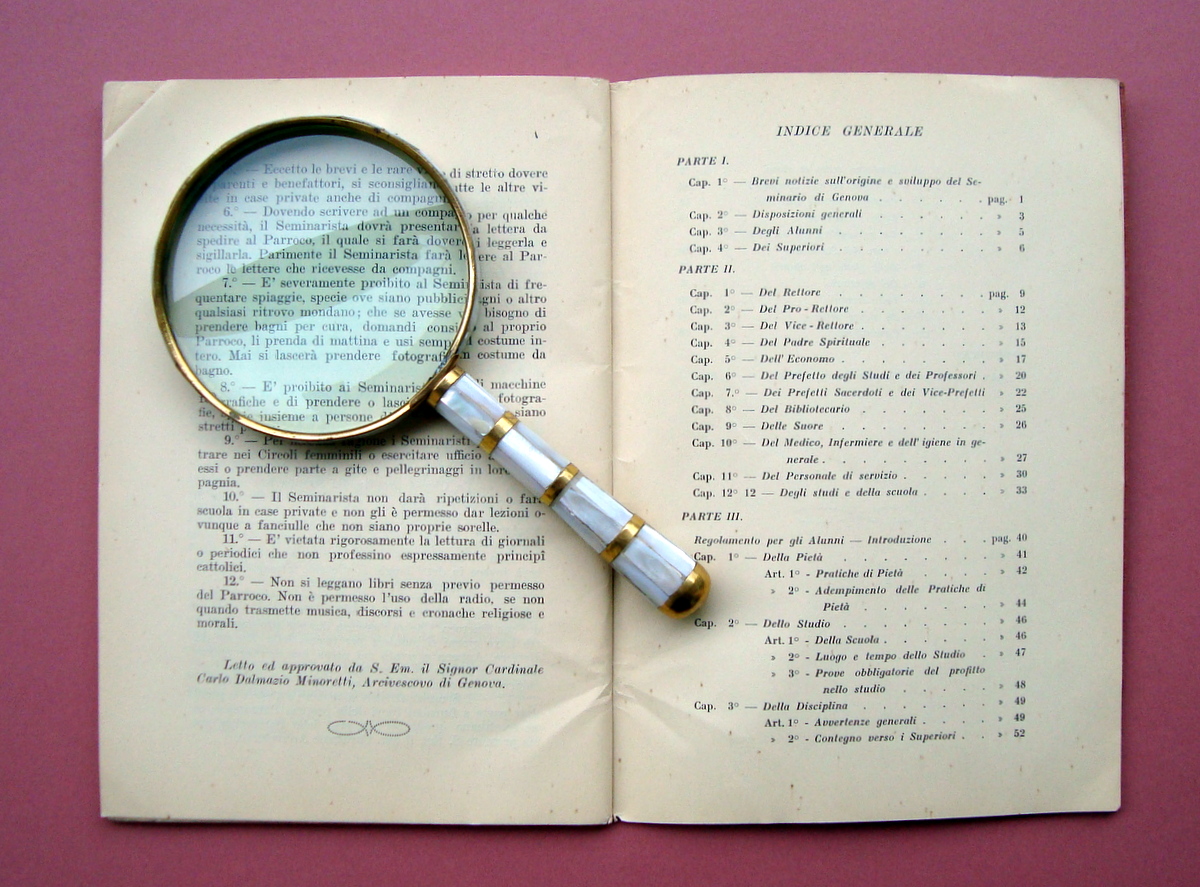 Eccetto le brevi e le rare di stretto dovere
parenti e benefattori, si sconsigliano tutte le altre vi-
in case private anche di compagni
6.° — Dovendo scrivere ad un compagno per qualche
necessità, il Seminarista dovrà presentare la lettera da
spedire al Parroco, il quale si farà dovere di leggerla e
sigillarla. Parimente il Seminarista farà leggere al Par-
roco le lettere che ricevesse da compagni.
7.° — E' severamente proibito al Seminarista di fre-
quentare spiaggie, specie ove siano pubblici bagni o altro
qualsiasi ritrovo mondano; che se avesse bisogno di
prendere bagni per cura, domandi al proprio
Parroco, li prenda di mattina e usi sempre il costume in-
tero. Mai si lascerà prendere fotografie in costume da
bagno.
8.° — E' proibito ai Seminaristi macchine
fotografiche e di prendere o fotogra-
fie, insieme a persone siano
stretti
9.° — Per i Seminaristi
trare nei Circoli femminili o esercitare ufficio
essi o prendere parte a gite e pellegrinaggi in loro
pagnia.
10.° — Il Seminarista non darà ripetizioni o farà
scuola in case private e non gli è permesso dar lezioni o-
vunque a fanciulle che non siano proprie sorelle.
11.° — E' vietata rigorosamente la lettura di giornali
o periodici che non professino espressamente principî
cattolici.
12.° — Non si leggano libri senza previo permesso
del Parroco. Non è permesso l'uso della radio, se non
quando trasmette musica, discorsi e cronache religiose e
morali.
Letto ed approvato da S. Em. il Signor Cardinale
Carlo Dalmazio Minoretti, Arcivescovo di Genova.
INDICE GENERALE
PARTE I.
Cap. 1° — Brevi notizie sull'origine e sviluppo del Se-
minario di Genova . . . . . . . pag. 1
Cap. 2° — Disposizioni generali . . . . . . . » 3
Cap. 3° — Degli Alunni . . . . . . . . » 5
Cap. 4° — Dei Superiori . . . . . . . . » 6
PARTE II.
Cap. 1° — Del Rettore . . . . . . . . pag. 9
Cap. 2° — Del Pro-Rettore . . . . . . . » 12
Cap. 3° — Del Vice-Rettore . . . . . . . » 13
Cap. 4° — Del Padre Spirituale . . . . . . » 15
Cap. 5° — Dell'Economo . . . . . . . . » 17
Cap. 6° — Del Prefetto degli Studi e dei Professori . » 20
Cap. 7.° — Dei Prefetti Sacerdoti e dei Vice-Prefetti » 22
Cap. 8° — Del Bibliotecario . . . . . . . » 25
Cap. 9° — Delle Suore . . . . . . . . » 26
Cap. 10° — Del Medico, Infermiere e dell'igiene in ge-
nerale . . . . . . . . . » 27
Cap. 11° — Del Personale di servizio . . . . . » 30
Cap. 12° 12 — Degli studi e della scuola . . . . » 33
PARTE III.
Regolamento per gli Alunni — Introduzione . . . pag. 40
Cap. 1° — Della Pietà . . . . . . . . » 41
Art. 1° - Pratiche di Pietà . . . . . » 42
» 2° - Adempimento delle Pratiche di
Pietà . . . . . . . » 44
Cap. 2° — Dello Studio . . . . . . . . » 46
Art. 1° - Della Scuola . . . . . . » 46
» 2° - Luogo e tempo dello Studio . » 47
» 3° - Prove obbligatorie del profitto
nello studio . . . . . » 48
Cap. 3° — Della Disciplina . . . . . . . » 49
Art. 1° - Avvertenze generali . . . . » 49
» 2° - Contegno verso i Superiori . . » 52